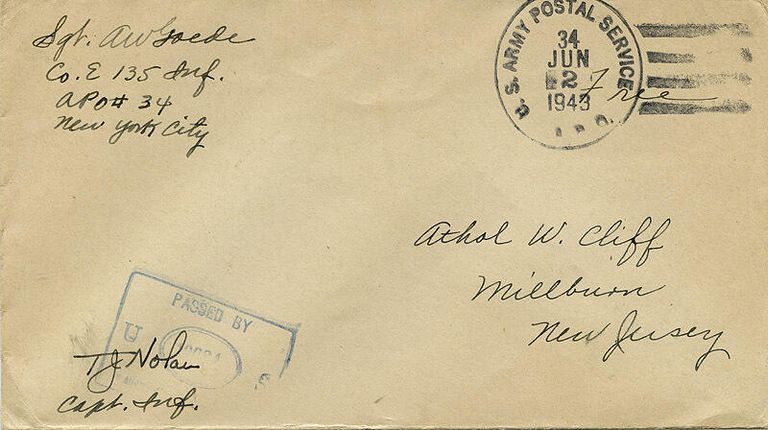 Sgt. AW Goede
Co. E 135 Inf.
APO# 34
New York City
U. S. ARMY POSTAL SERVICE
34
JUN
2
1943
A. P. O.
Free
Athol W. Cliff
Millburn
New Jersey
PASSED BY
U S
TJ Nolan
Capt. Inf.